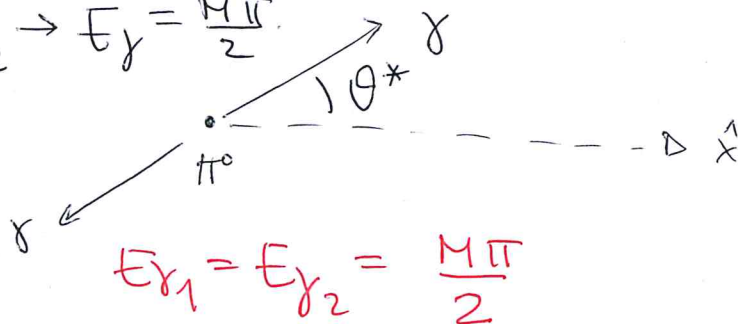 → Eγ = Mπ/2
γ
θ*
π° x̂
γ
Eγ₁ = Eγ₂ = Mπ/2